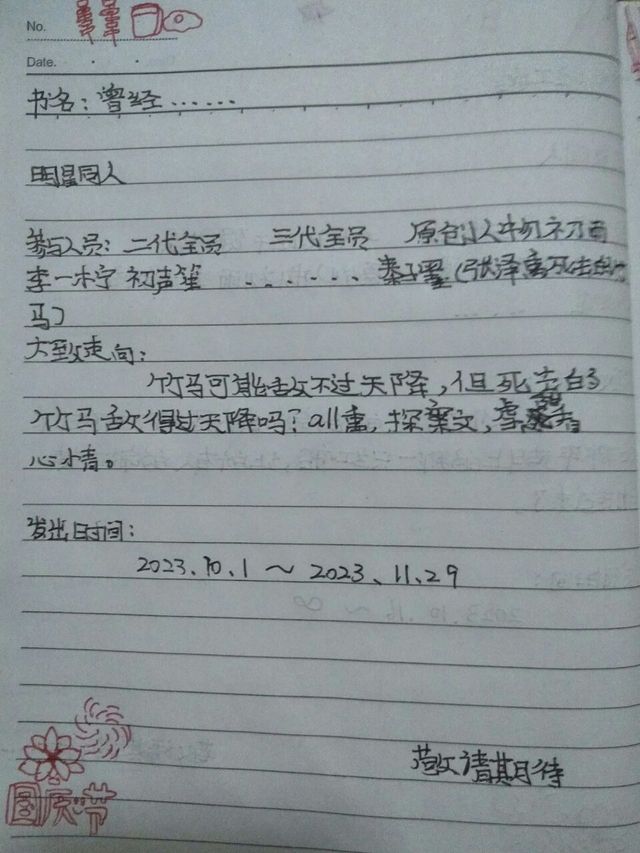 No.
Date.
书名：曾经……
明星同人
参与人员：二代全员 三代全员 原创人物初雨
李一柠 初声笙 ....... 秦子(张泽禹死去的竹
马)
大致走向：
竹马可能敌不过天降，但死去的
竹马敌得过天降吗？all禹，探案文，虐
心
发出时间：
2023.10.1～2023.11.29
敬请期待
国庆节